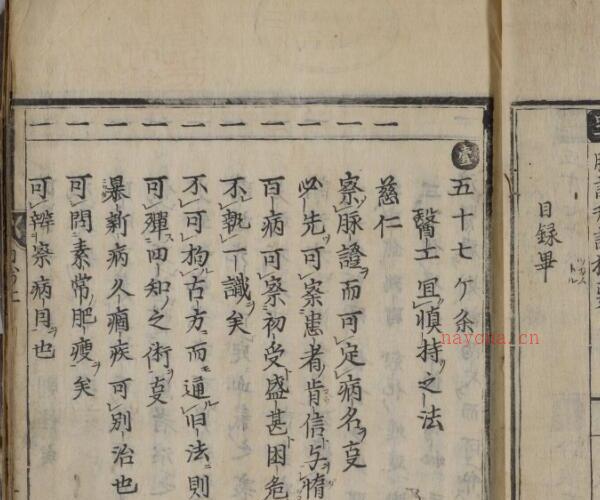 目録畢
壹
五十七ケ条
醫士宜慎持之法
一 慈仁
一 察脉證而可定病名叓
一 必先可察患者肯信与惰
一 百病可察初受盛甚困危
一 不執一識矣
一 不可拘古方而通旧法則
一 可殫四知之術叓
一 暴新病久痼疾可別治也
一 可問素常肥瘦矣
一 可辨察病因也
nayona.cn